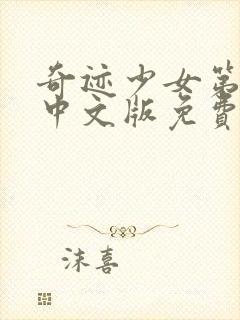 奇迹少女第
中文版免費
沫喜